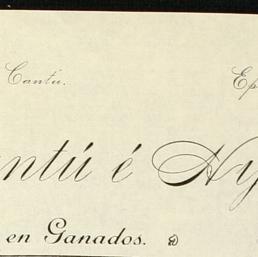 Cantú. Ep
antú é Hij
en Ganados.